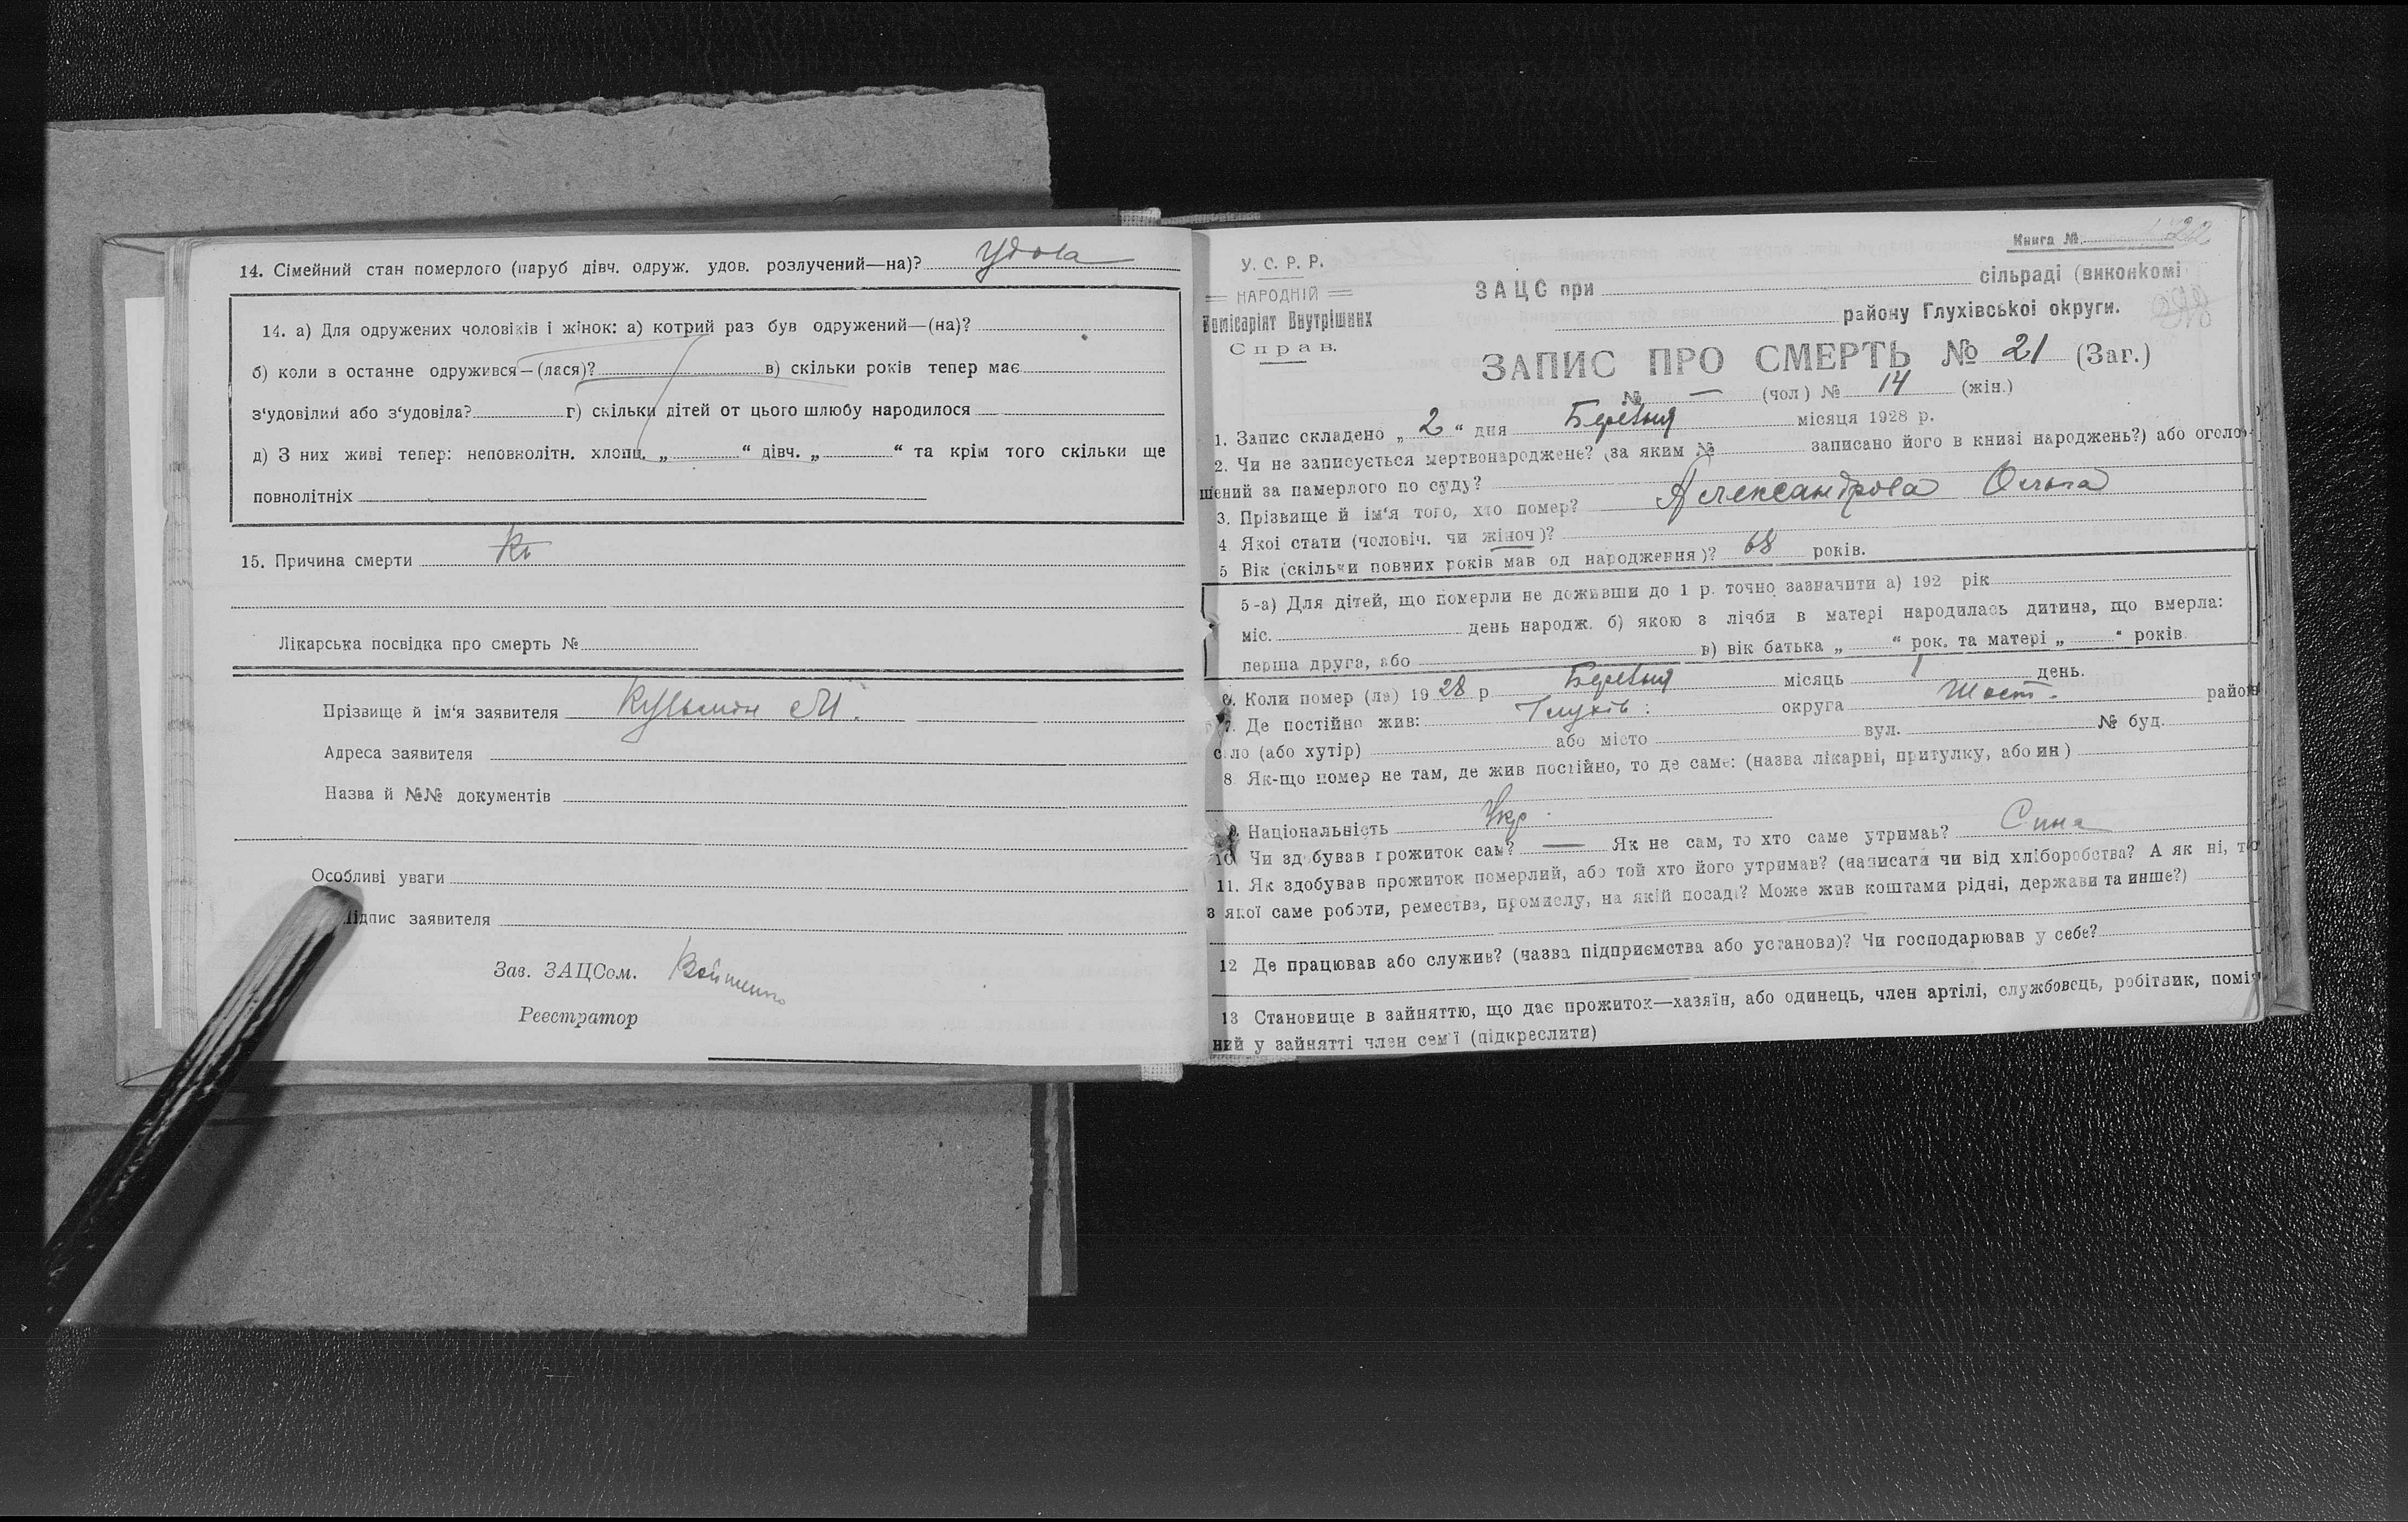 14. Сімейний стан померлого (паруб дівч. одруж. удов. розлучений—на)? Удова
14. а) Для одружених чоловіків і жінок: а) котрий раз був одружений—(на)?
б) коли в останне одружився—(лася)? в) скільки років тепер має
з'удовілий або з'удовіла? г) скільки дітей от цього шлюбу народилося
д) З них живі тепер: неповнолітн. хлопц. „ “ дівч. „ “ та крім того скільки ще
повнолітніх
15. Причина смерти
Лікарська посвідка про смерть №
Прізвище й ім'я заявителя М.
Адреса заявителя
Назва й №№ документів
Особливі уваги
Підпис заявителя
Зав. ЗАЦСом.
Реєстратор
Книга № 22
У. С. Р. Р.
НАРОДНІЙ
Комісаріят Внутрішних
Справ.
ЗАЦС при сільраді (виконкомі
району Глухівської округи.
ЗАПИС ПРО СМЕРТЬ № 21 (Заг.)
№ — (чол) № 14 (жін.)
1. Запис складено „ 2 “ дня Березня місяця 1928 р.
2. Чи не записується мертвонароджене? (за яким № записано його в книзі народжень?) або оголо-
шений за памерлого по суду?
3. Прізвище й ім'я того, хто помер? Александрова Ольга
4 Якої стати (чоловіч. чи жіноч)?
5 Вік (скільки повних років мав од народження)? 68 років.
5-а) Для дітей, що померли не доживши до 1 р. точно зазначити а) 192 рік
міс. день народж. б) якою з лічби в матері народилась дитина, що вмерла:
перша друга, або в) вік батька „ “ рок. та матері „ “ років.
6. Коли помер (ла) 19 28 р Березня місяць 1 день.
7. Де постійно жив: Глухів: округа Шост. район
село (або хутір) або місто вул. № буд.
8 Як-що помер не там, де жив постійно, то де саме: (назва лікарні, притулку, або ин)
9. Національність Укр.
10. Чи здобував прожиток сам? — Як не сам, то хто саме утримав? Сина
11. Як здобував прожиток померлий, або той хто його утримав? (написати чи від хліборобства? А як ні, то
з якої саме роботи, ремества, промислу, на якій посаді? Може жив коштами рідні, держави та инше?)
12 Де працював або служив? (назва підприємства або установи)? Чи господарював у себе?
13 Становище в зайняттю, що дає прожиток—хазяїн, або одинець, член артілі, службовець, робітник, поміч
ний у зайнятті член сем'ї (підкреслити)